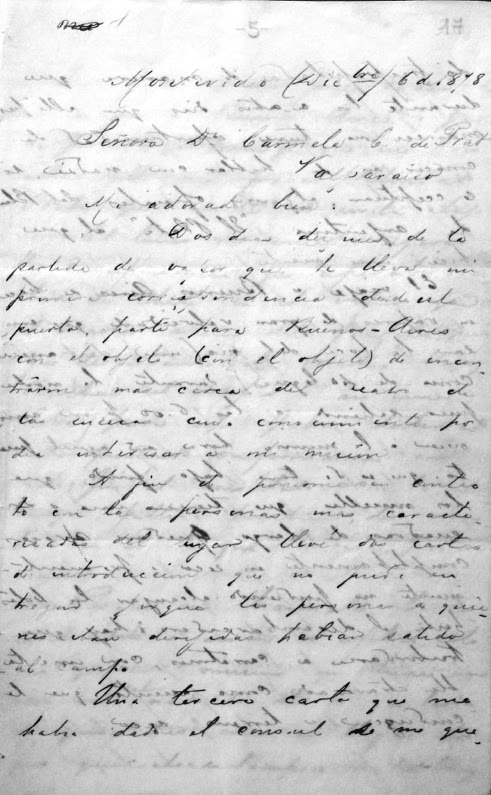 -5-
17
Montevideo (Dicbre) 6 de 1878
Señora Da Carmela C. de Prat
Valparaiso
Mi adorado bien:
Dos dias despues de la
partida de vapor que te lleva mi
primer correspondencia desde este
puerto, parti para Buenos-Aires
con el objeto (con el objeto) de encon
trarme mas cerca del teatro de
los sucesos cuyo conocimiento po
dia interesar a mi mision
A fin de ponerme en contac
to con las personas mas caracte-
rizadas del lugar llevé dos cartas
de introduccion que no pude en
tregar porque las personas a quie-
nes iban dirigidas habian salido
al campo
Una tercera carta que me
habia dado el consul me que-